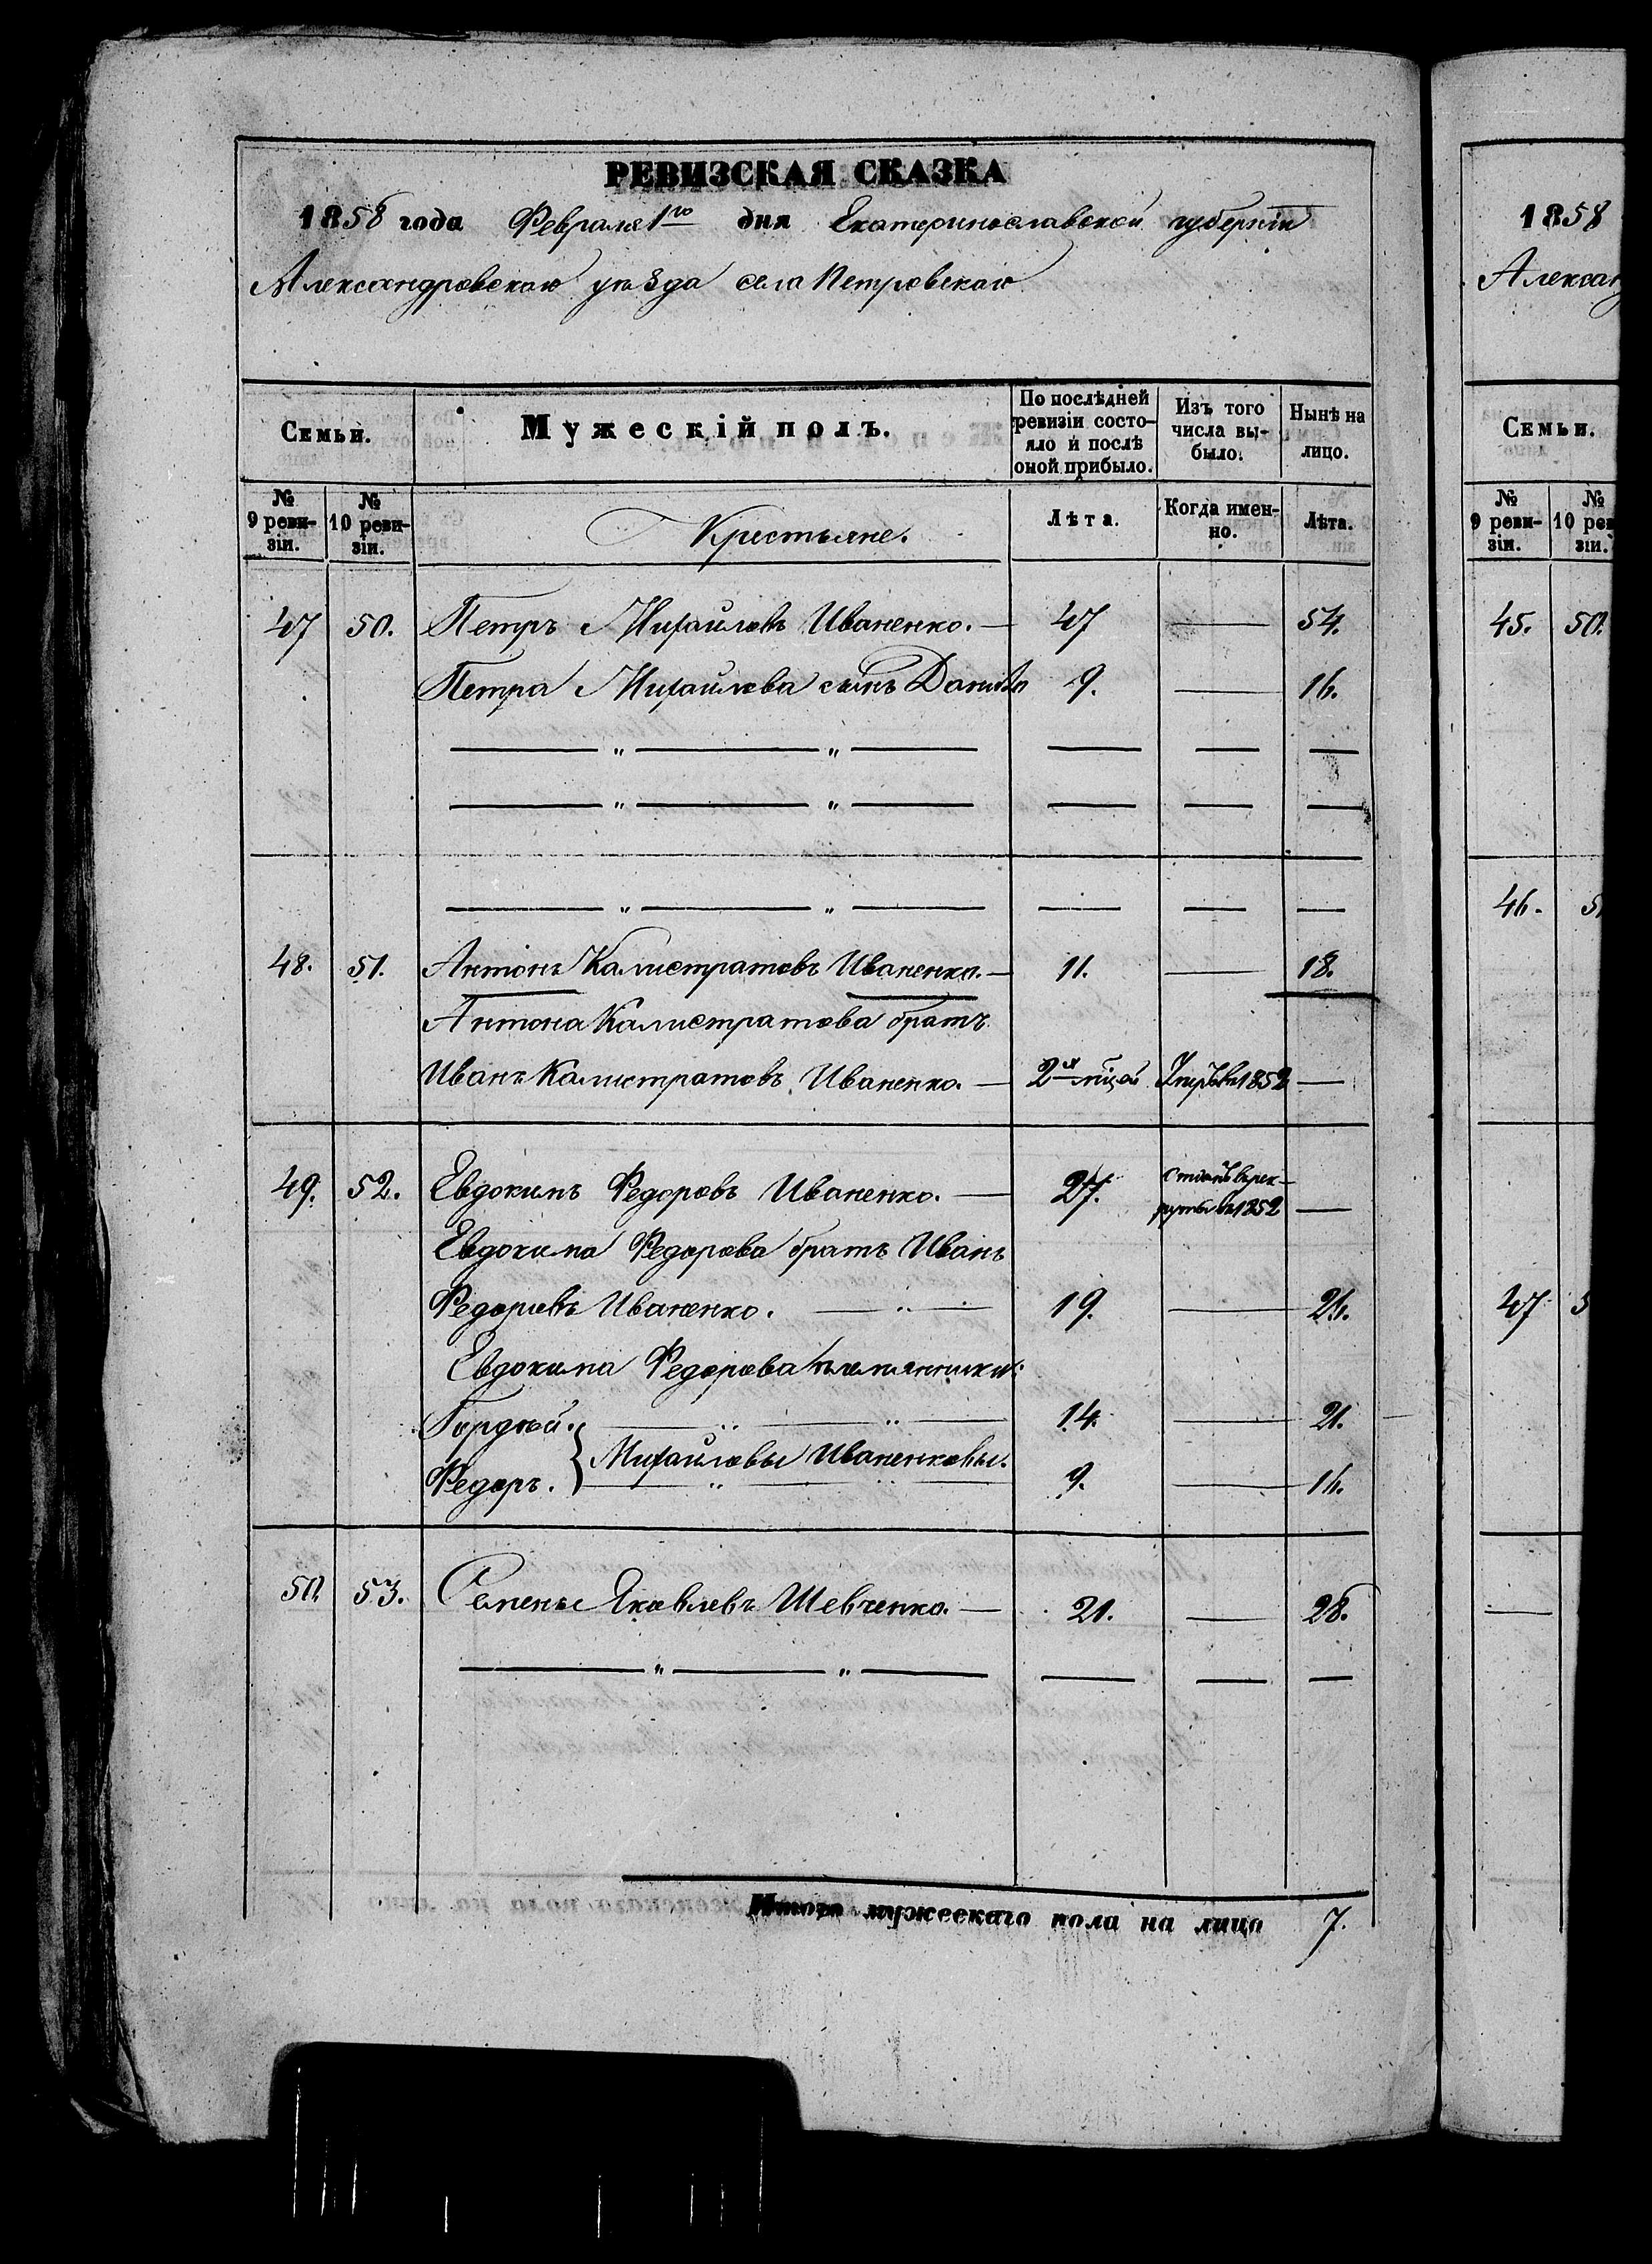 РЕВИЗСКАЯ СКАЗКА
1858 года Февраля 1го дня Екатеринославской губерніи
Александровскаго уѣзда села Петровскаго
Семьи. Мужескій полъ. По послѣдней ревизіи состояло и послѣ оной прибыло. Изъ того числа выбыло. Нынѣ на лицо.
№ 9 ревизіи. № 10 ревизіи. Крестьяне. Лѣта. Когда именно. Лѣта.
47 50. Петръ Михайловъ Иваненко. — 47 — 54.
Петра Михайлова сынъ Данило 9. — 16.
— " — " — — — —
— " — " — — — —
— " — " — — — —
48. 51. Антонъ Калистратовъ Иваненко. — 11. — 18.
Антона Калистратова братъ
Иванъ Калистратовъ Иваненко. — 2х Умръ въ 1852 —
49. 52. Евдокимъ Федоровъ Иваненко. — 27. отданъ въ рек-
руты въ 1852 —
Евдокима Федорова братъ Иванъ
Федоровъ Иваненко. — " — 19. — 26.
Евдокима Федорова племянники:
Гордѣй. — " — " — 14. — 21.
} Михайловы Иваненковы.
Федоръ. — " — " — 9. — 16.
50. 53. Семенъ Яковлевъ Шевченко. — 21. — 28.
— " — " — — — —
Итого мужескаго пола на лицо 7.
1858
Алексан
Семьи.
№ 9 ревизіи. № 10 рев зіи.
45. 50.
46. 5
47 5